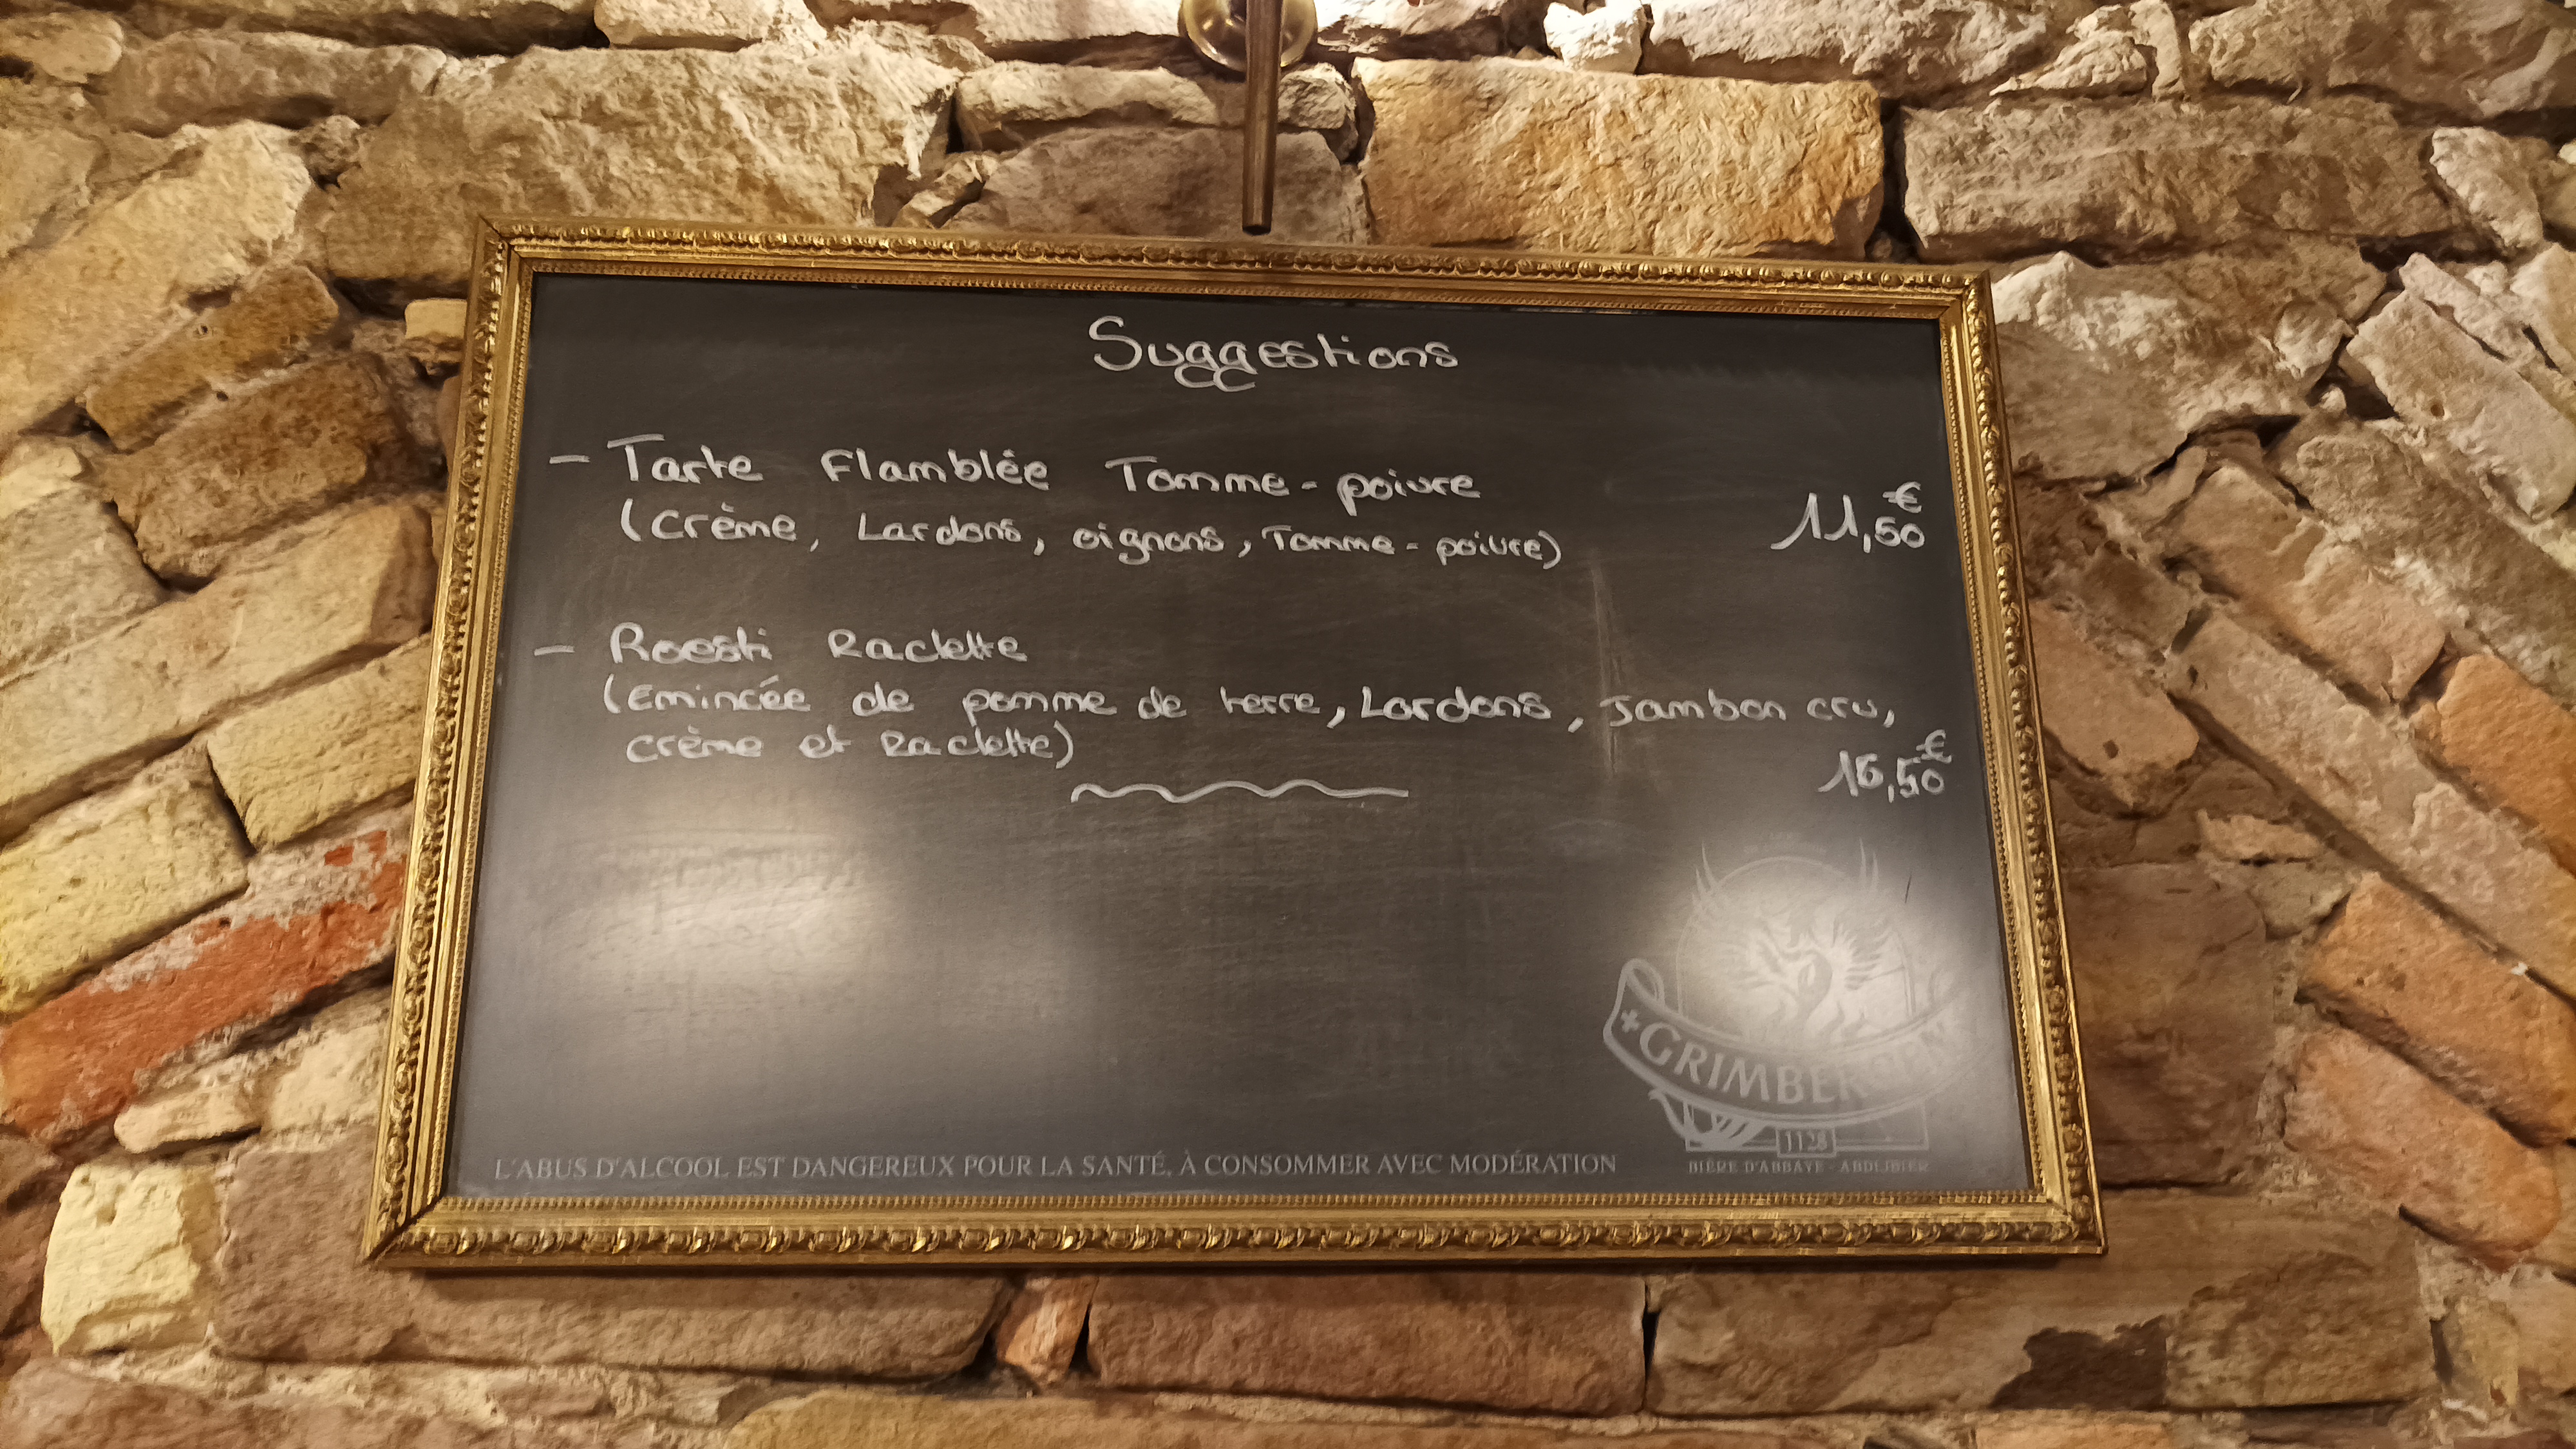 Suggestions
- Tarte Flamblée Tomme-poivre
(crème, Lardons, oignons, Tomme-poivre)
11,50€
- Roesti Raclette
(Emincée de pomme de terre, Lardons, Jambon cru,
crème et Raclette)
16,50€
GRIMBERGEN
1128
BIÈRE D'ABBAYE - ABDIJBIER
L'ABUS D'ALCOOL EST DANGEREUX POUR LA SANTÉ, À CONSOMMER AVEC MODÉRATION